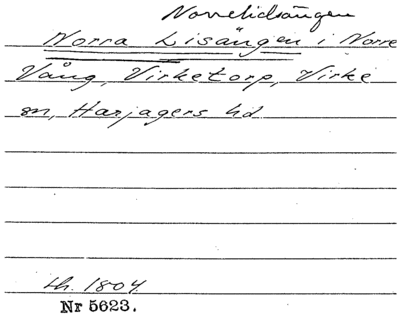 Norrelidsängen
Norra Lisängen i Norre
Vång, Virketorp, Virke
sn, Harjagers hd
lh. 1804
Nr 5623.